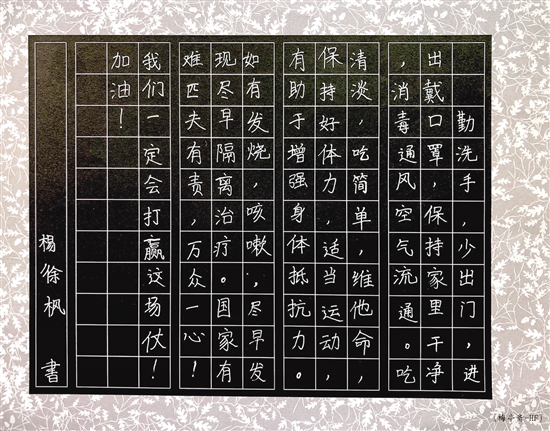 勤洗手，少出门，进
出戴口罩，保持家里干净
，消毒通风，空气流通。吃
清淡，吃简单，维他命，
保持好体力，适当运动，
有助于增强身体抵抗力。
如有发烧，咳嗽，尽早发
现尽早隔离治疗。国家有
难匹夫有责，万众一心！
我们一定会打赢这场仗！
加油！
杨徐枫 书